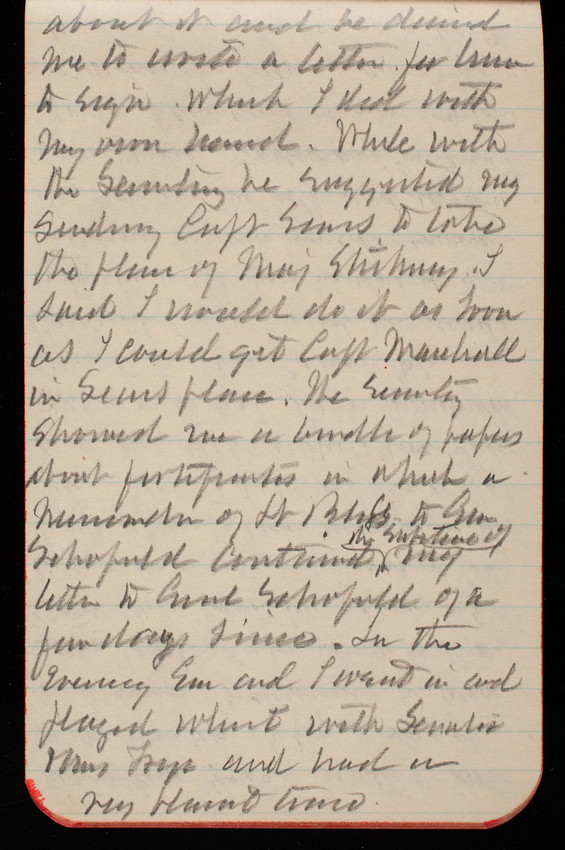 about it and he desired
me to write a letter for him
to sign. Which I did with
my own hand. While with
the Secretary he suggested my
sending Capt Sears to take
the place of Maj Stickney. I
said I would do it as soon
as I could get Capt Marshall
in Sears place. The Secretary
showed me a bundle of papers
about fortifications in which a
memoranda of Lt Bliss, to Gen
the substance of
Schofield contained my
letter to Genl Schofield of a
few days since. In the
Evening Em and I went in and
played whist with Senator
Frye and had a
very pleasant time.